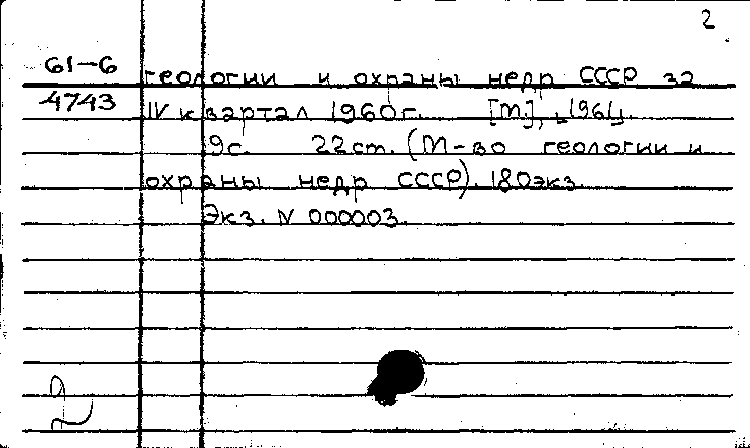 2
61-6 геологии и охраны недр СССР за
4743 IV квартал 1960г. [М.], [1961].
9с. 22см. (М-во геологии и
охраны недр СССР). 180экз.
Экз. N 000003.
2